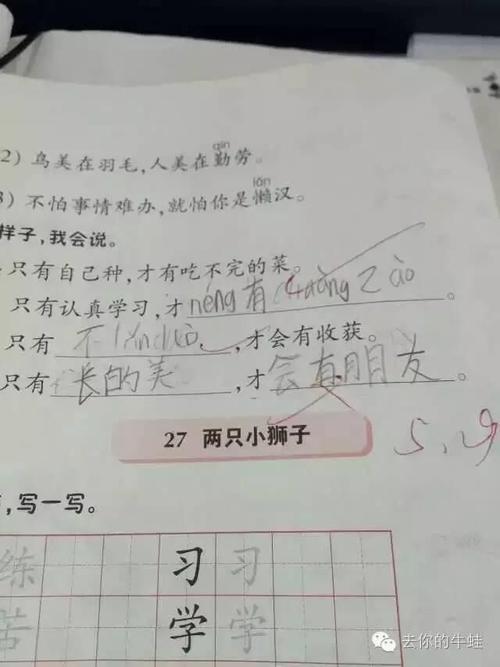 qín
2) 鸟美在羽毛,人美在勤劳。
lǎn
3) 不怕事情难办,就怕你是懒汉。
样子,我会说。
只有自己种,才有吃不完的菜。
只有认真学习,才 néng 有 zào 。
只有 不 ,才会有收获。
只有 长的美 ,才 会有朋友 。
27 两只小狮子
5.29
,写一写。
练 习 习
苦 学 学
去你的牛蛙